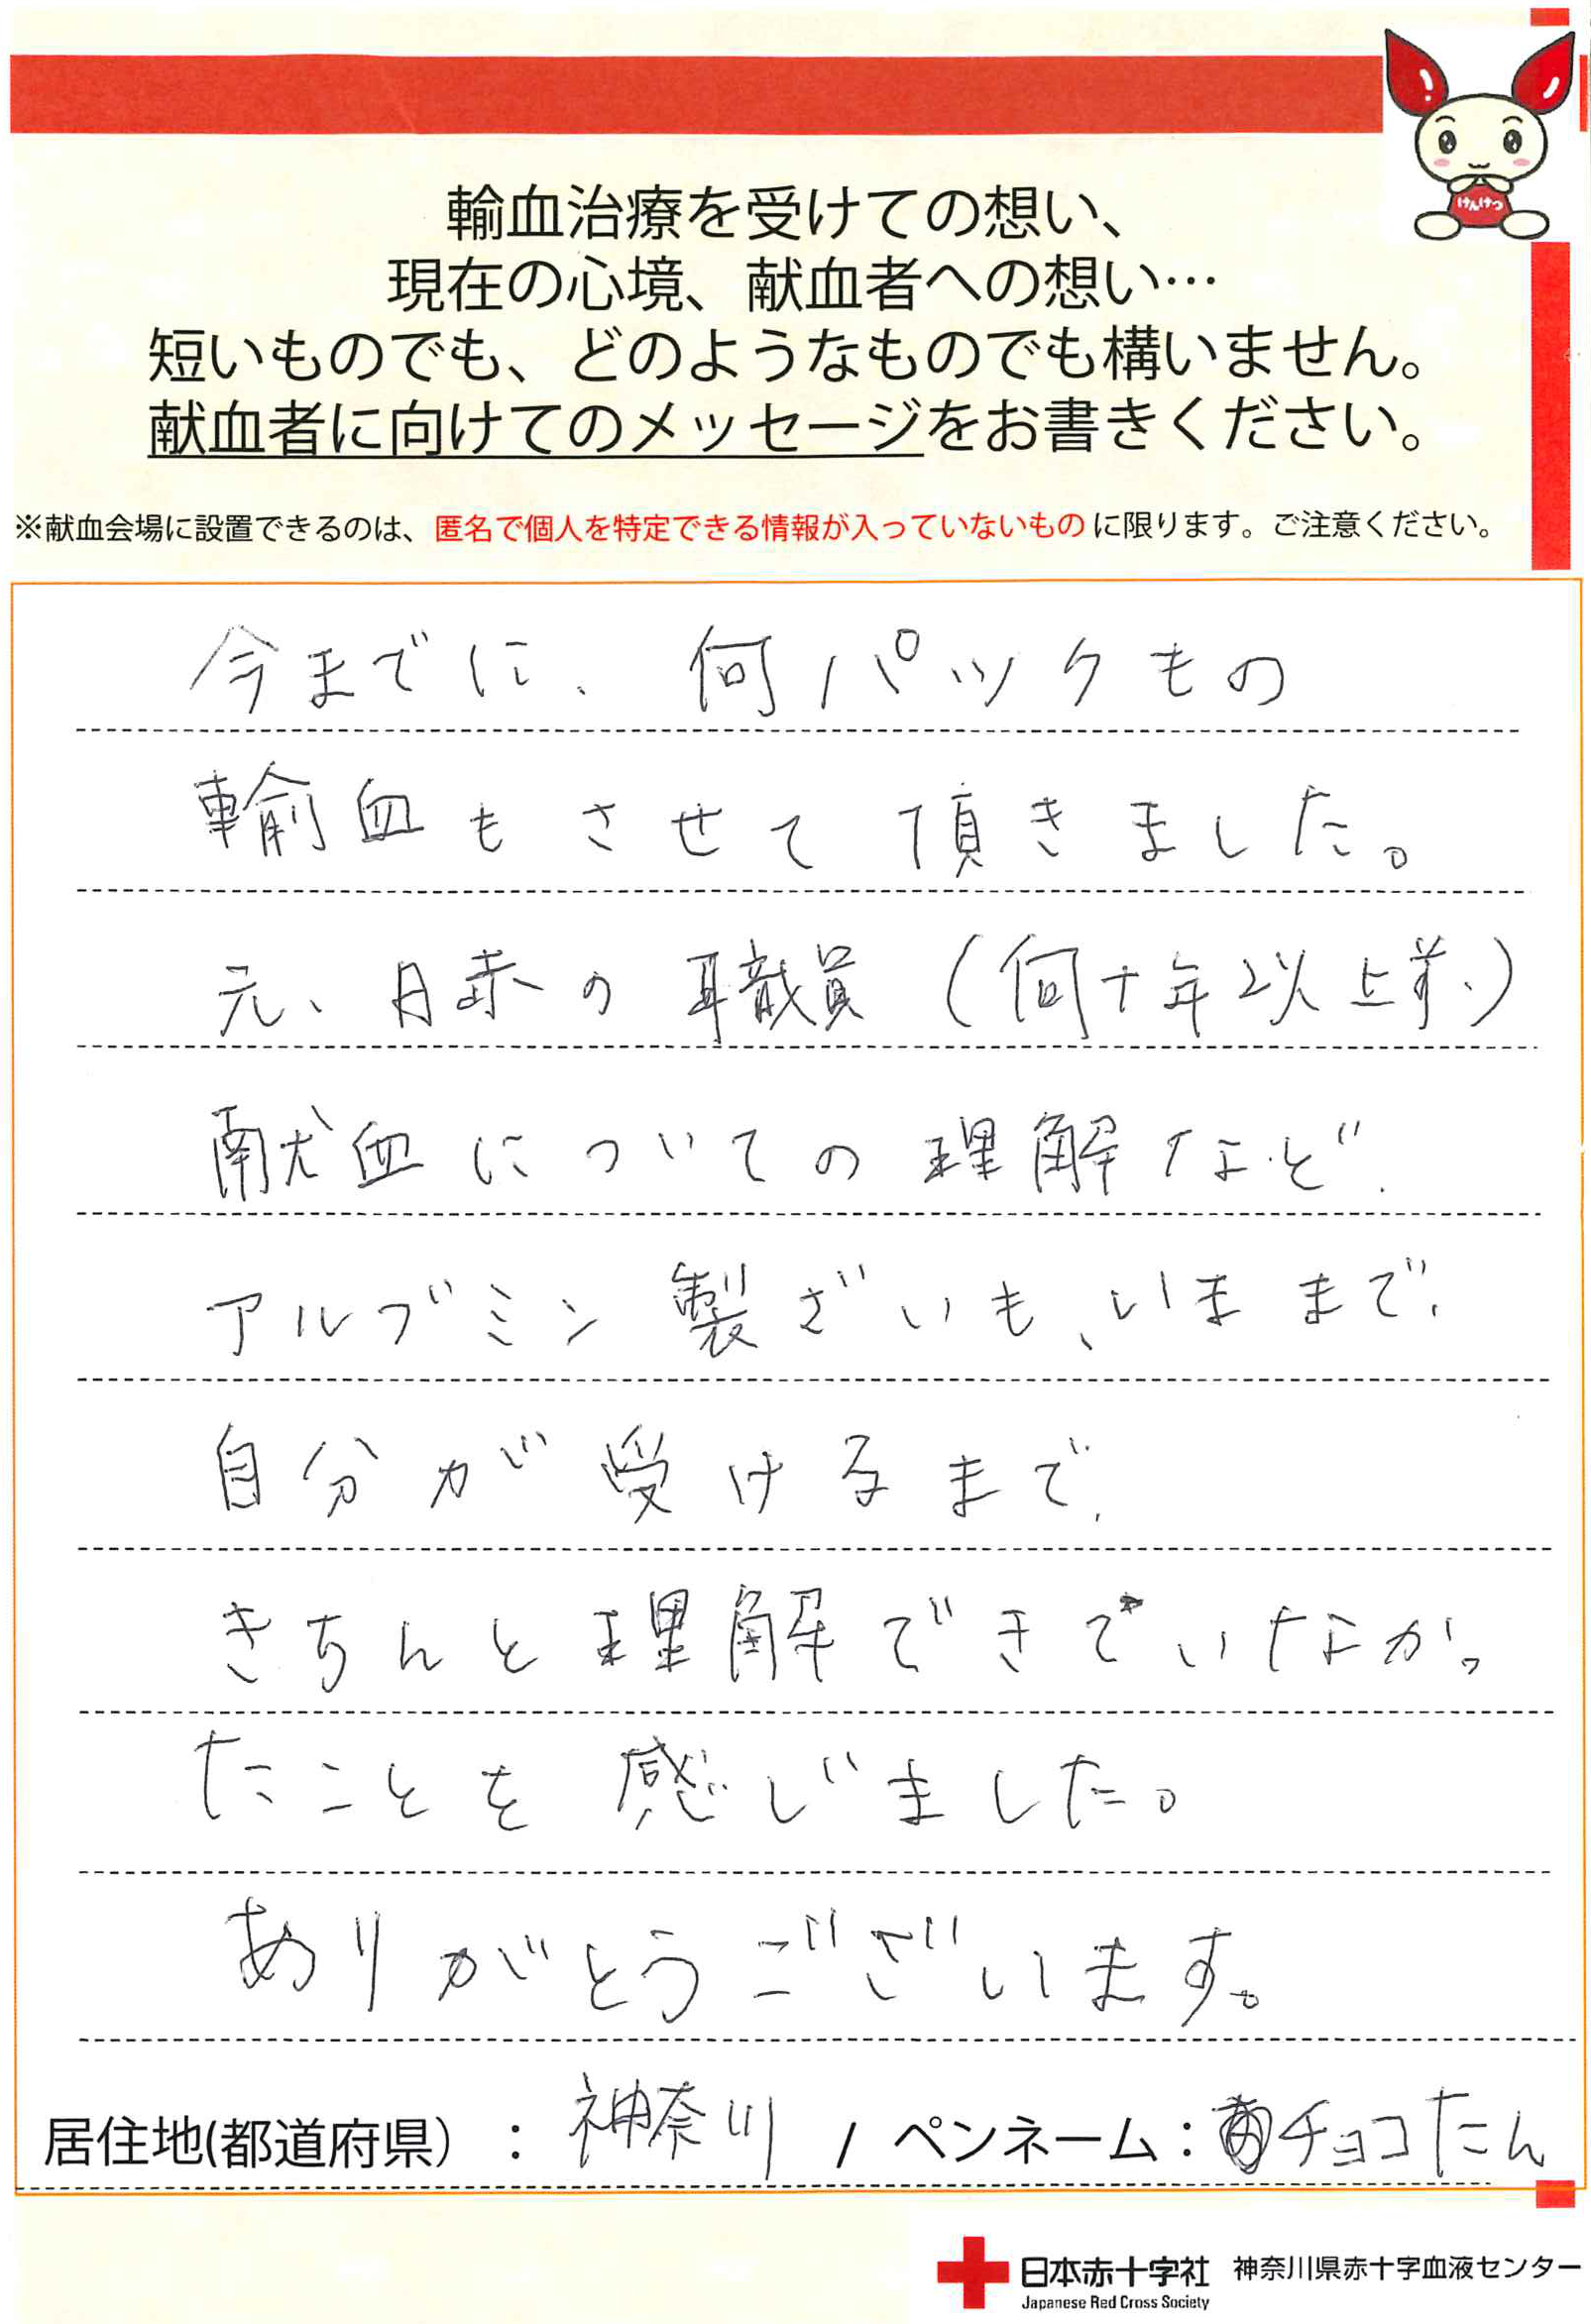 けんけつ
輸血治療を受けての想い、
現在の心境、献血者への想い…
短いものでも、どのようなものでも構いません。
献血者に向けてのメッセージをお書きください。
※献血会場に設置できるのは、匿名で個人を特定できる情報が入っていないものに限ります。ご注意ください。
今までに、何パックもの
輸血もさせて頂きました。
元、日赤の職員(何十年以上前)
献血についての理解など、
アルブミン製ざいも、いままで、
自分が受けるまで、
きちんと理解できていなかっ
たことを感じました。
ありがとうございます。
居住地(都道府県) : 神奈川 / ペンネーム:チョコたん
日本赤十字社 神奈川県赤十字血液センター
Japanese Red Cross Society